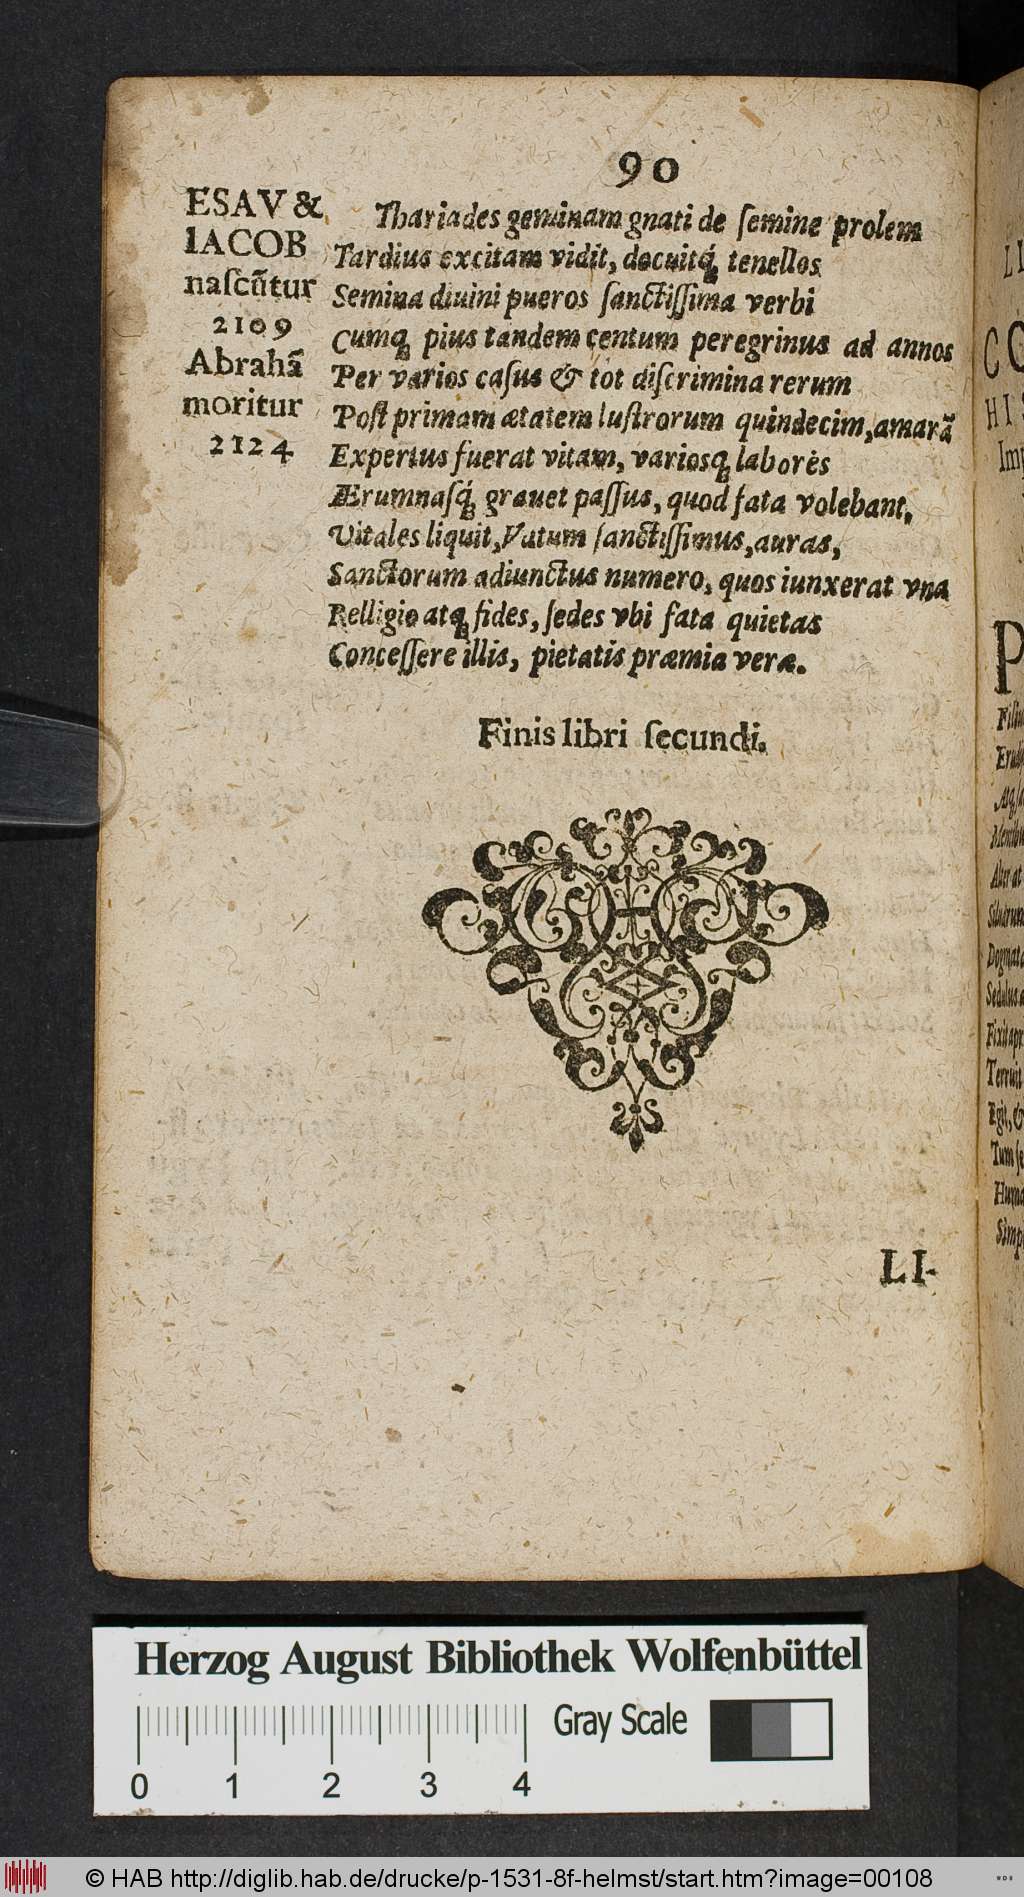 90
ESAV &
IACOB
naſcūtur
2109
Abrahā
moritur
2124
Thariades geminam gnati de ſemine prolem
Tardius excitam vidit, docuitq́; tenellos
Semina diuini pueros ſanctiſſima verbi
Cumq; pius tandem centum peregrinus ad annos
Per varios caſus & tot diſcrimina rerum
Poſt primam ætatem luſtrorum quindecim, amarā
Expertus fuerat vitam, variosq; labores
Ærumnaſq́; grauet paſſus, quod fata volebant,
Vitales liquit, Vatum ſanctiſſimus, auras,
Sanctorum adiunctus numero, quos iunxerat vna
Relligio atq; fides, ſedes vbi fata quietas
Conceſſere illis, pietatis præmia veræ.
Finis libri ſecundi.
LI-
Herzog August Bibliothek Wolfenbüttel
Gray Scale
0 1 2 3 4
© HAB http://diglib.hab.de/drucke/p-1531-8f-helmst/start.htm?image=00108